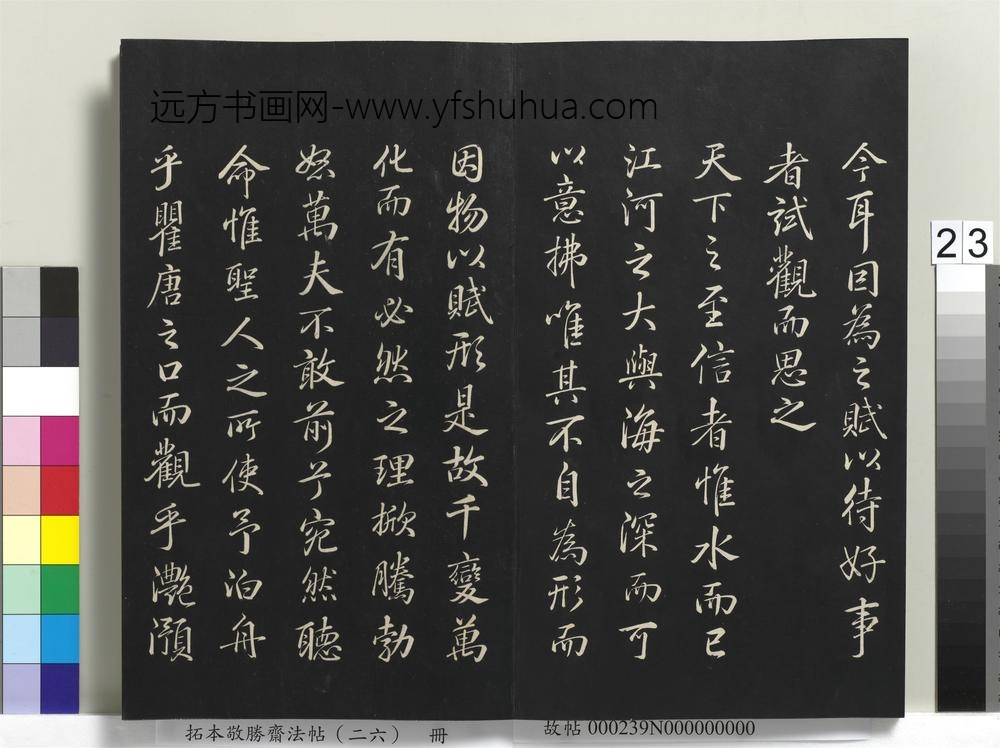 远方书画网-www.yfshuhua.com
今耳因為之賦以待好事
者試觀而思之
天下之至信者惟水而已
江河之大與海之深而可
以意揣唯其不自為形而
因物以賦形是故千變萬
化而有必然之理掀騰勃
怒萬夫不敢前兮宛然聽
命惟聖人之所使予泊舟
乎瞿唐之口而觀乎灧澦
23
拓本敬勝齋法帖（二六） 冊
故帖 000239N000000000